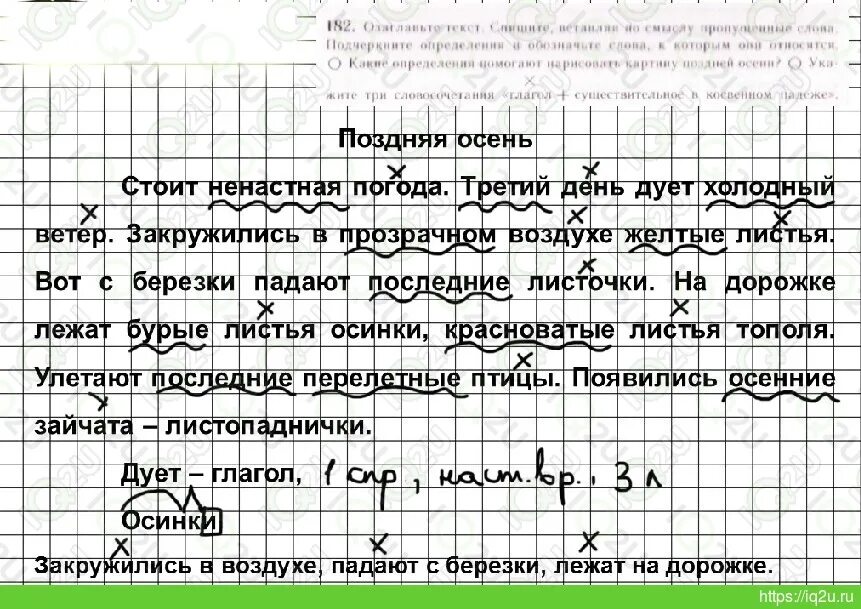 182. Озаглавьте текст. Спишите, вставляя по смыслу пропущенные слова.
Подчеркните определения и обозначьте слова, к которым они относятся.
Какие определения помогают нарисовать картину поздней осени? Ука-
жите три словосочетания «глагол + существительное в косвенном падеже».
Поздняя осень
Стоит ненастная погода. Третий день дует холодный
ветер. Закружились в прозрачном воздухе желтые листья.
Вот с березки падают последние листочки. На дорожке
лежат бурые листья осинки, красноватые листья тополя.
Улетают последние перелетные птицы. Появились осенние
зайчата – листопаднички.
Дует – глагол, 1 спр, наст.вр., 3 л
Осинки
Закружились в воздухе, падают с березки, лежат на дорожке.
https://iq2u.ru